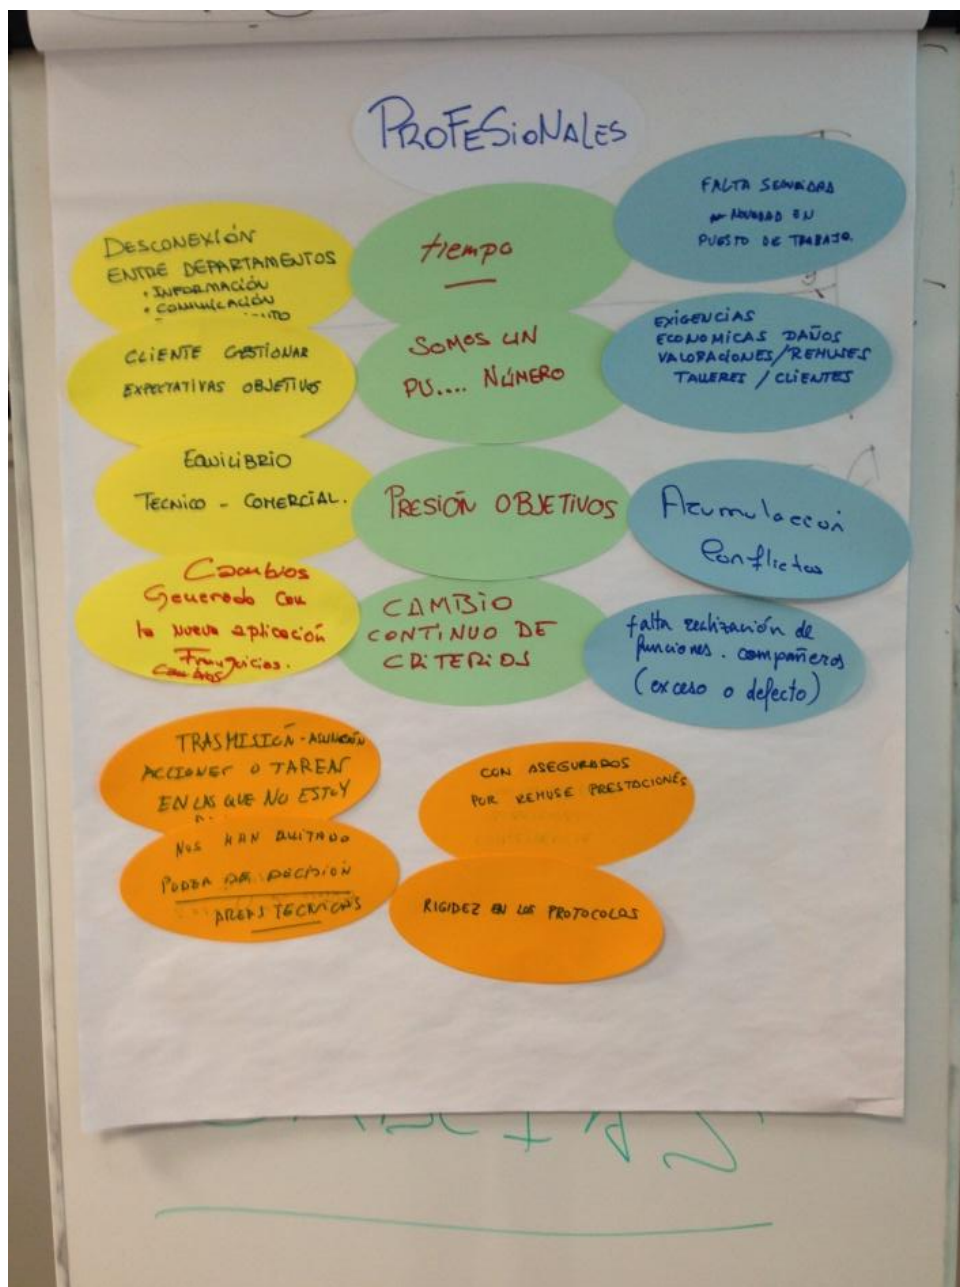 PROFESIONALES
DESCONEXIÓN
ENTRE DEPARTAMENTOS
• INFORMACIÓN
• COMUNICACIÓN
CLIENTE GESTIONAR
EXPECTATIVAS OBJETIVOS
EQUILIBRIO
TECNICO - COMERCIAL.
Cambios
Generado con
la nueva aplicación
Franquicias.
tiempo
SOMOS UN
PU.... NÚMERO
PRESIÓN OBJETIVOS
CAMBIO
CONTINUO DE
CRITERIOS
FALTA
NOVEDAD EN
PUESTO DE TRABAJO.
EXIGENCIAS
ECONOMICAS DAÑOS
VALORACIONES/REHUSES
TALLERES / CLIENTES
Acumulacción
Conflictos
falta realización de
funciones. compañeros
(exceso o defecto)
TRASMISIÓN - ASUNCIÓN
ACCIONES O TAREAS
EN LAS QUE NO ESTOY
NOS HAN QUITADO
PODER DE DECISIÓN
AREAS TECNICAS
CON ASEGURADOS
POR REHUSE PRESTACIONES
RIGIDEZ EN LOS PROTOCOLOS